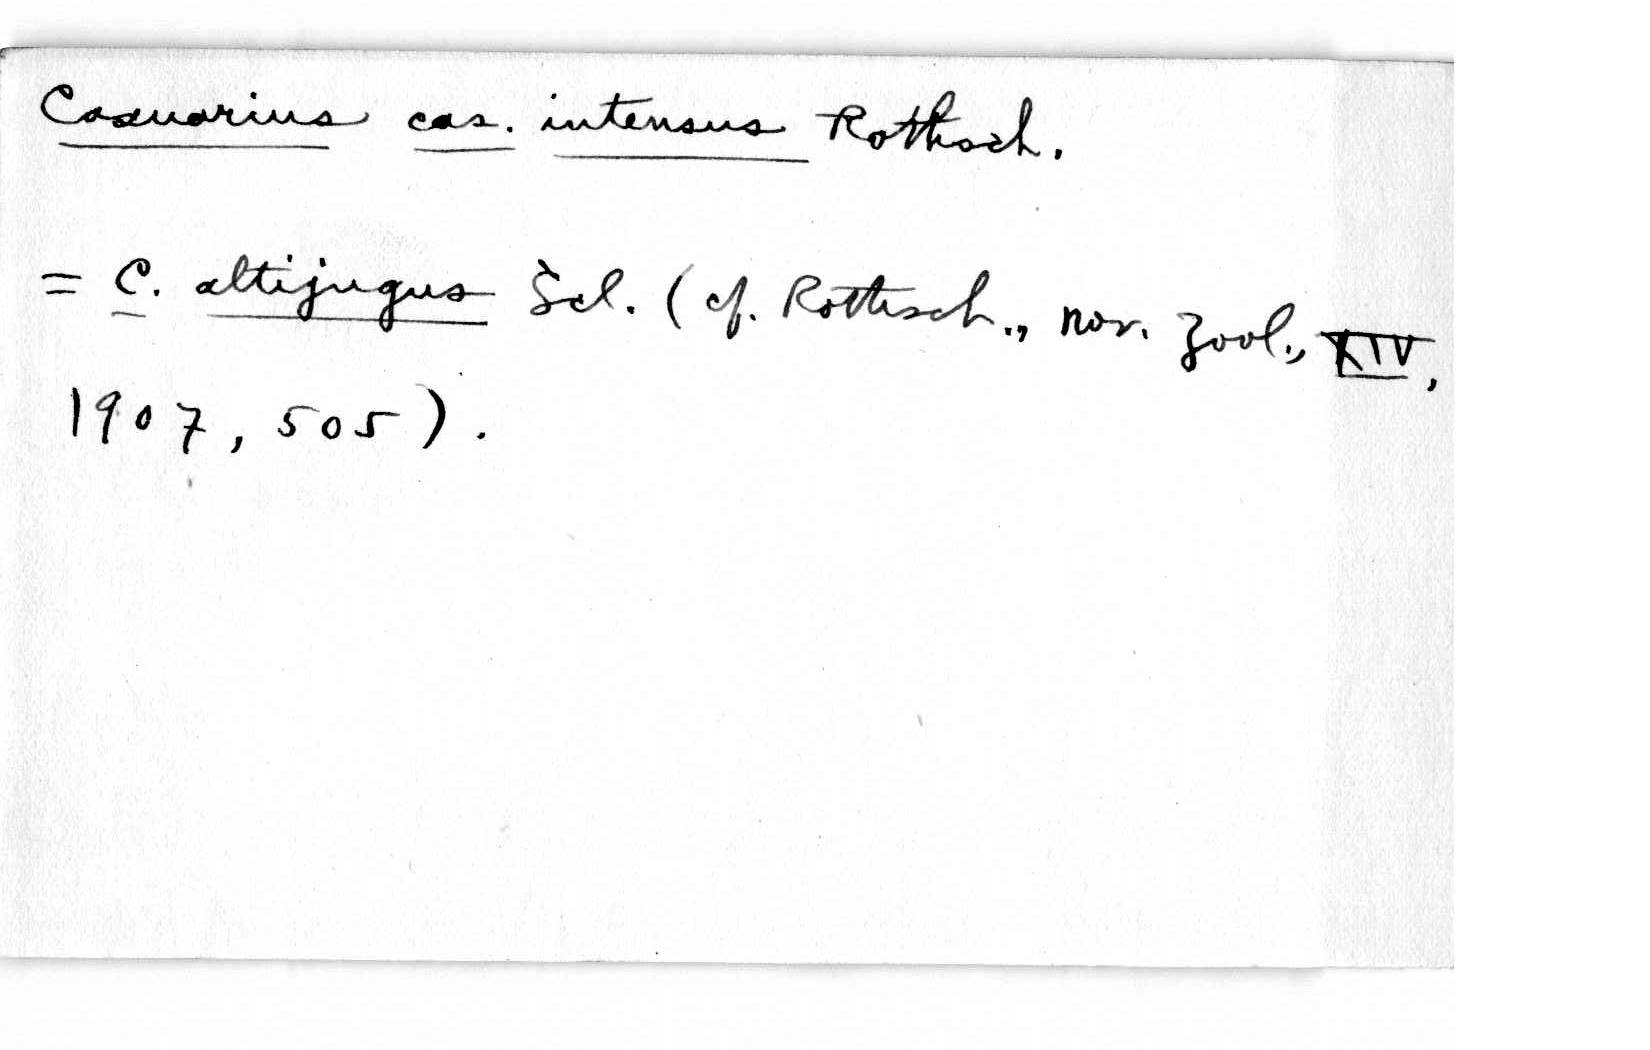 Casuarius cas. intensus Rothsch.
= C. altijugus Scl. (cf. Rothsch., Nov. Zool., XIV,
1907, 505).